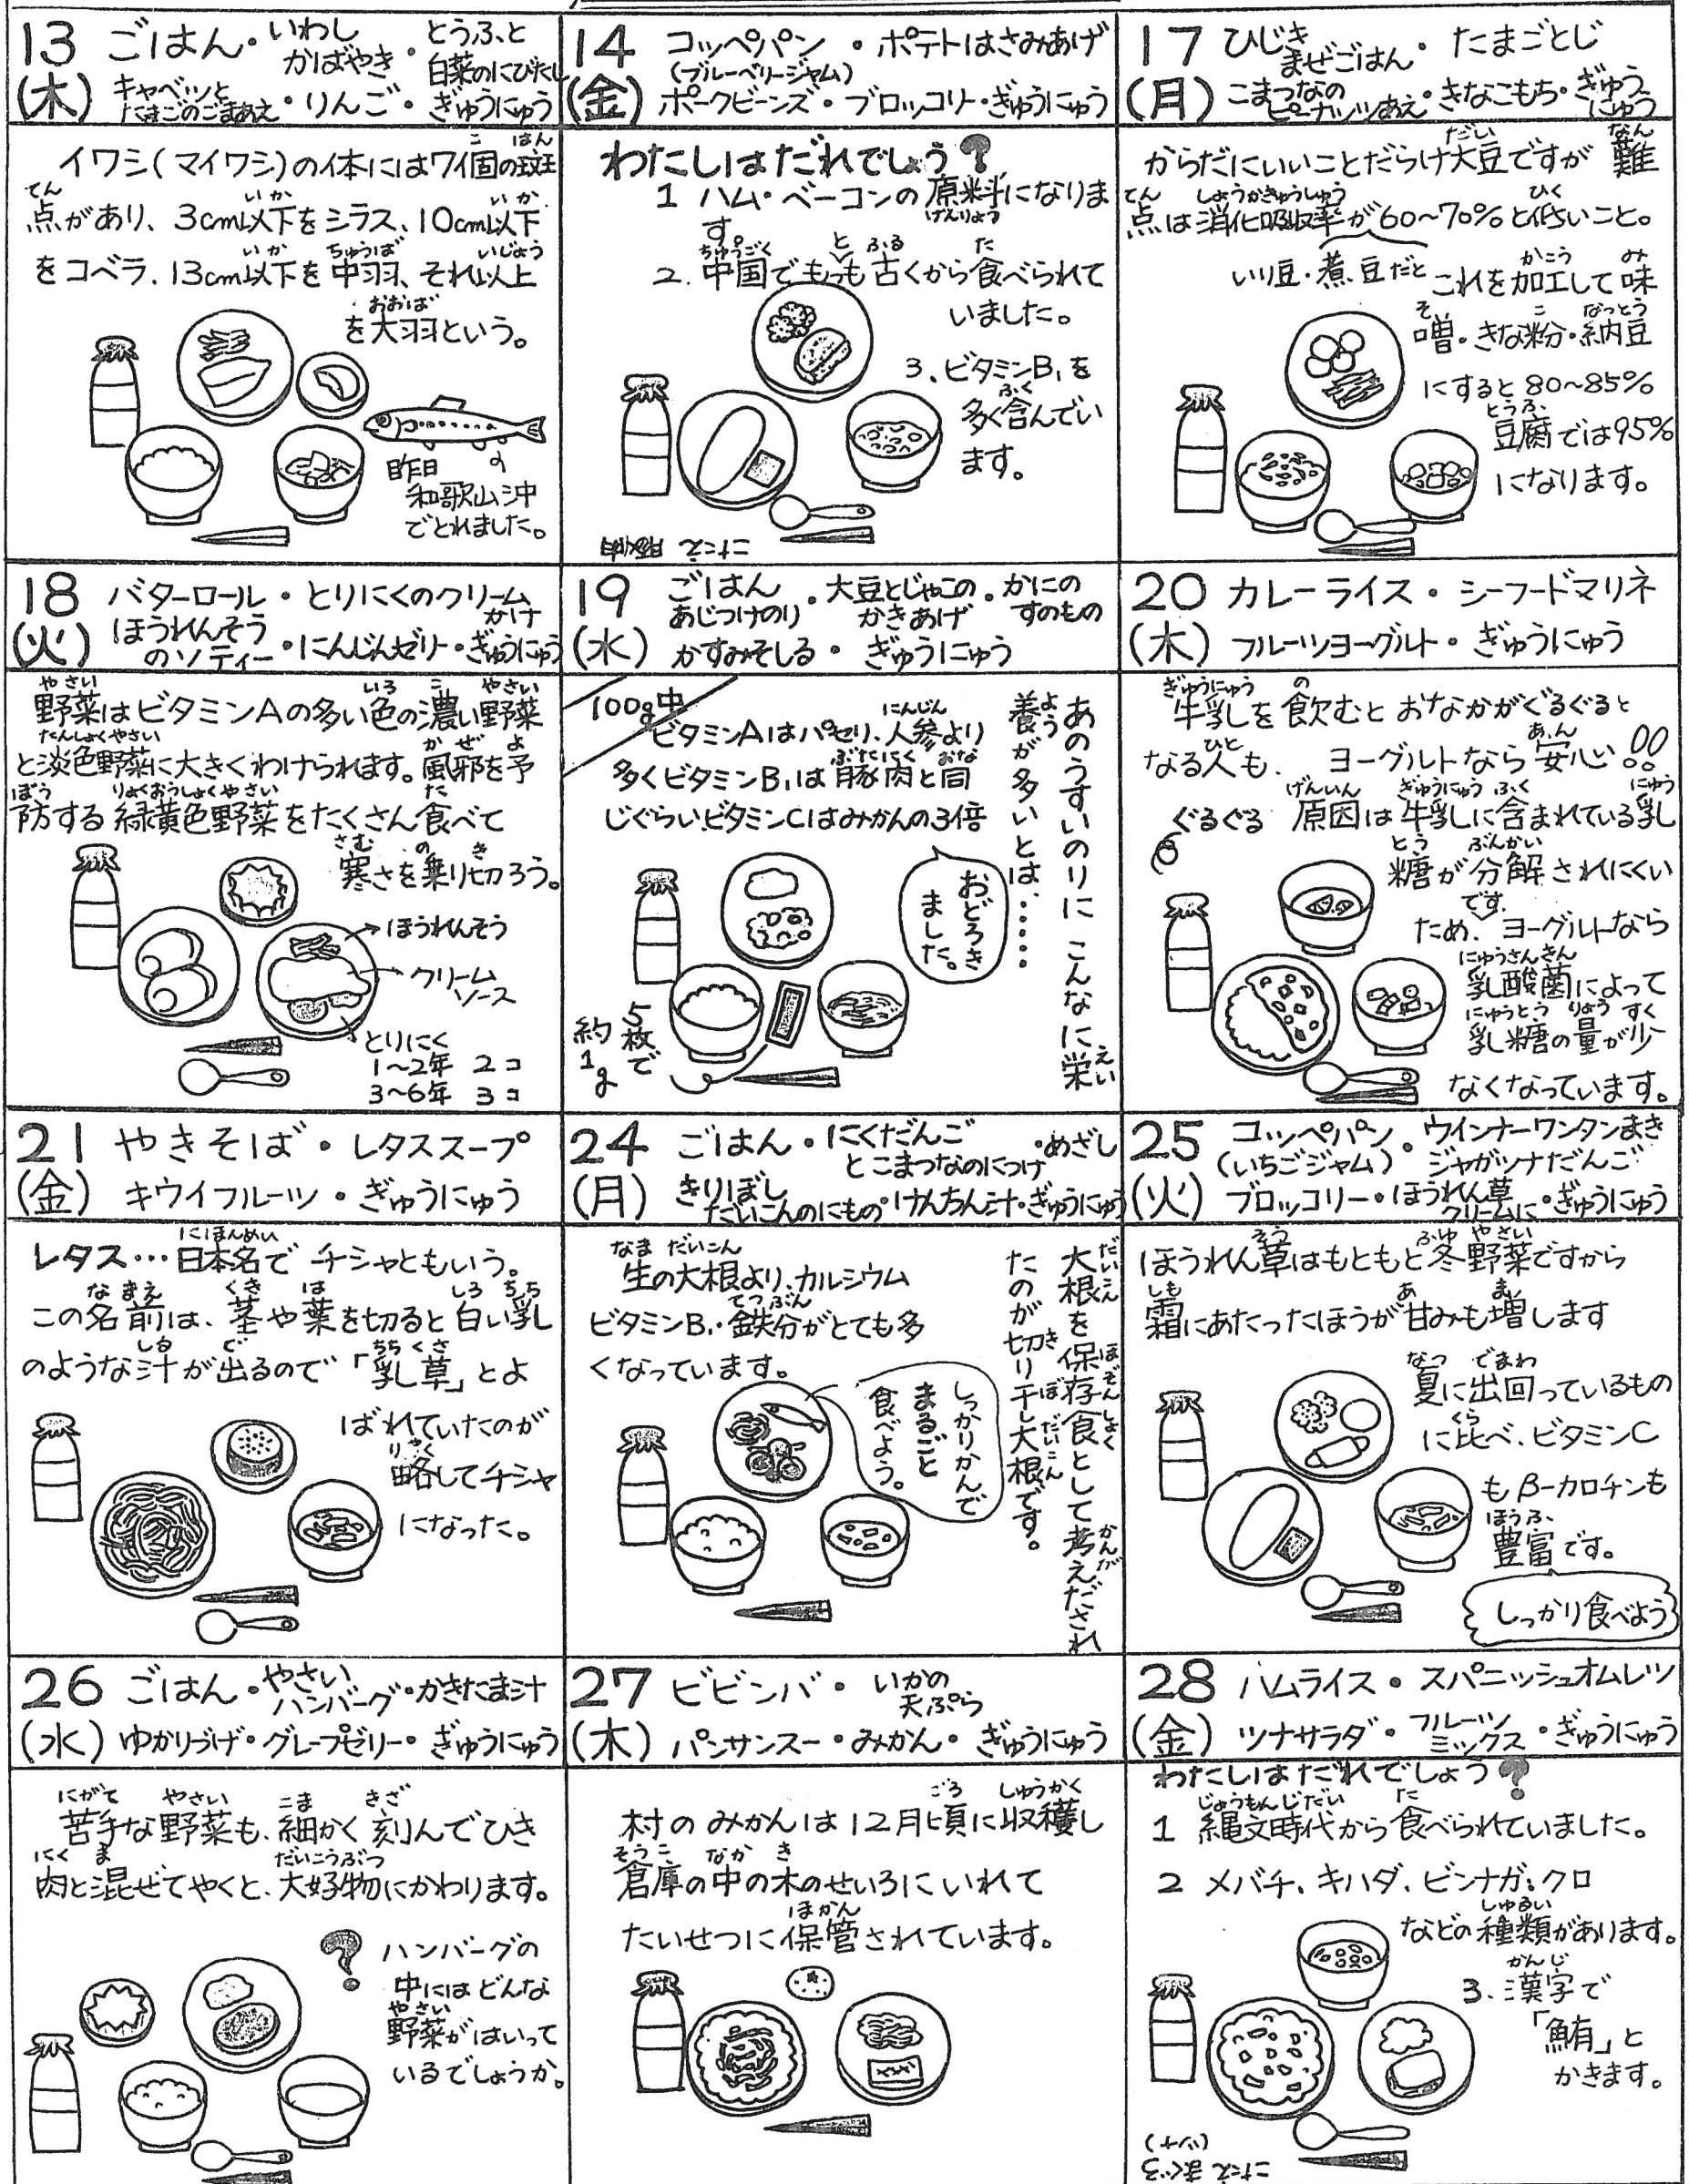 13 ごはん・いわしかばやき・とうふと白菜のにびたし
(木) キャベツとたまごのごまあえ・りんご・ぎゅうにゅう
イワシ(マイワシ)の体には7個の斑
点があり、3cm以下をシラス、10cm以下
をコベラ、13cm以下を中羽、それ以上
を大羽という。
昨日
和歌山沖
でとれました。
14 コッペパン・ポテトはさみあげ
(ブルーベリージャム)
(金) ポークビーンズ・ブロッコリー・ぎゅうにゅう
わたしはだれでしょう?
1 ハム・ベーコンの原料になりま
す。
2. 中国でもっも古くから食べられて
いました。
3、ビタミンB₁を
多く含んでい
ます。
こたえ
17 ひじきまぜごはん・たまごとじ
(月) こまつなのピーナッツあえ・きなこもち・ぎゅうにゅう
からだにいいことだらけ大豆ですが 難
点は消化吸収率が60~70%と低いこと。
いり豆・煮豆だと
これを加工して味
噌・きな粉・納豆
にすると80~85%
豆腐では95%
になります。
18 バターロール・とりにくのクリームかけ
(火) ほうれんそうのソティー・にんじんゼリー・ぎゅうにゅう
野菜はビタミンAの多い色の濃い野菜
と淡色野菜に大きくわけられます。風邪を予
防する緑黄色野菜をたくさん食べて
寒さを乗り切ろう。
ほうれんそう
クリーム
ソース
とりにく
1~2年 2コ
3~6年 3コ
19 ごはん・大豆とじゃこのかきあげ・かにのすのもの
あじつけのり
(水) かすみそしる・ぎゅうにゅう
100g中
ビタミンAはパセリ、人参より
多くビタミンB₁は豚肉と同
じぐらい、ビタミンCはみかんの3倍
あのうすいのりに こんなに栄
養が多いとは……
おどろき
ました。
5枚で
約1g
20 カレーライス・シーフードマリネ
(木) フルーツヨーグルト・ぎゅうにゅう
牛乳を飲むとおなかがぐるぐると
なる人も、ヨーグルトなら安心!!
ぐるぐる 原因は牛乳に含まれている乳
糖が分解されにくい
ためです、ヨーグルトなら
乳酸菌によって
乳糖の量が少
なくなっています。
21 やきそば・レタススープ
(金) キウイフルーツ・ぎゅうにゅう
レタス…日本名で チシャともいう。
この名前は、茎や葉を切ると白い乳
のような汁が出るので「乳草」とよ
ばれていたのが
略してチシャ
になった。
24 ごはん・にくだんごとこまつなのにつけ・めざし
(月) きりぼしだいこんのにもの・けんちん汁・ぎゅうにゅう
生の大根より、カルシウム
ビタミンB₁・鉄分がとても多
くなっています。
大根を保存食として考えだされ
たのが切り干し大根です。
しっかりかんで
まるごと
食べよう。
25 コッペパン・ウインナーワンタンまき
(いちごジャム)・ジャガツナだんご
(火) ブロッコリー・ほうれん草クリームに・ぎゅうにゅう
ほうれん草はもともと冬野菜ですから
霜にあたったほうが甘みも増します
夏に出回っているもの
に比べ、ビタミンC
もβ-カロチンも
豊富です。
しっかり食べよう
26 ごはん・やさいハンバーグ・かきたま汁
(水) ゆかりづけ・グレープゼリー・ぎゅうにゅう
苦手な野菜も、細かく刻んでひき
肉と混ぜてやくと、大好物にかわります。
? ハンバーグの
中にはどんな
野菜がはいって
いるでしょうか。
27 ビビンバ・いかの天ぷら
(木) バンサンスー・みかん・ぎゅうにゅう
村のみかんは12月頃に収穫し
倉庫の中の木のせいろにいれて
たいせつに保管されています。
28 ハムライス・スパニッシュオムレツ
(金) ツナサラダ・フルーツミックス・ぎゅうにゅう
わたしはだれでしょう?
1 縄文時代から食べられていました。
2 メバチ、キハダ、ビンナガ、クロ
などの種類があります。
3、漢字で
「鮪」と
かきます。
こたえ まぐろ
(ツナ)